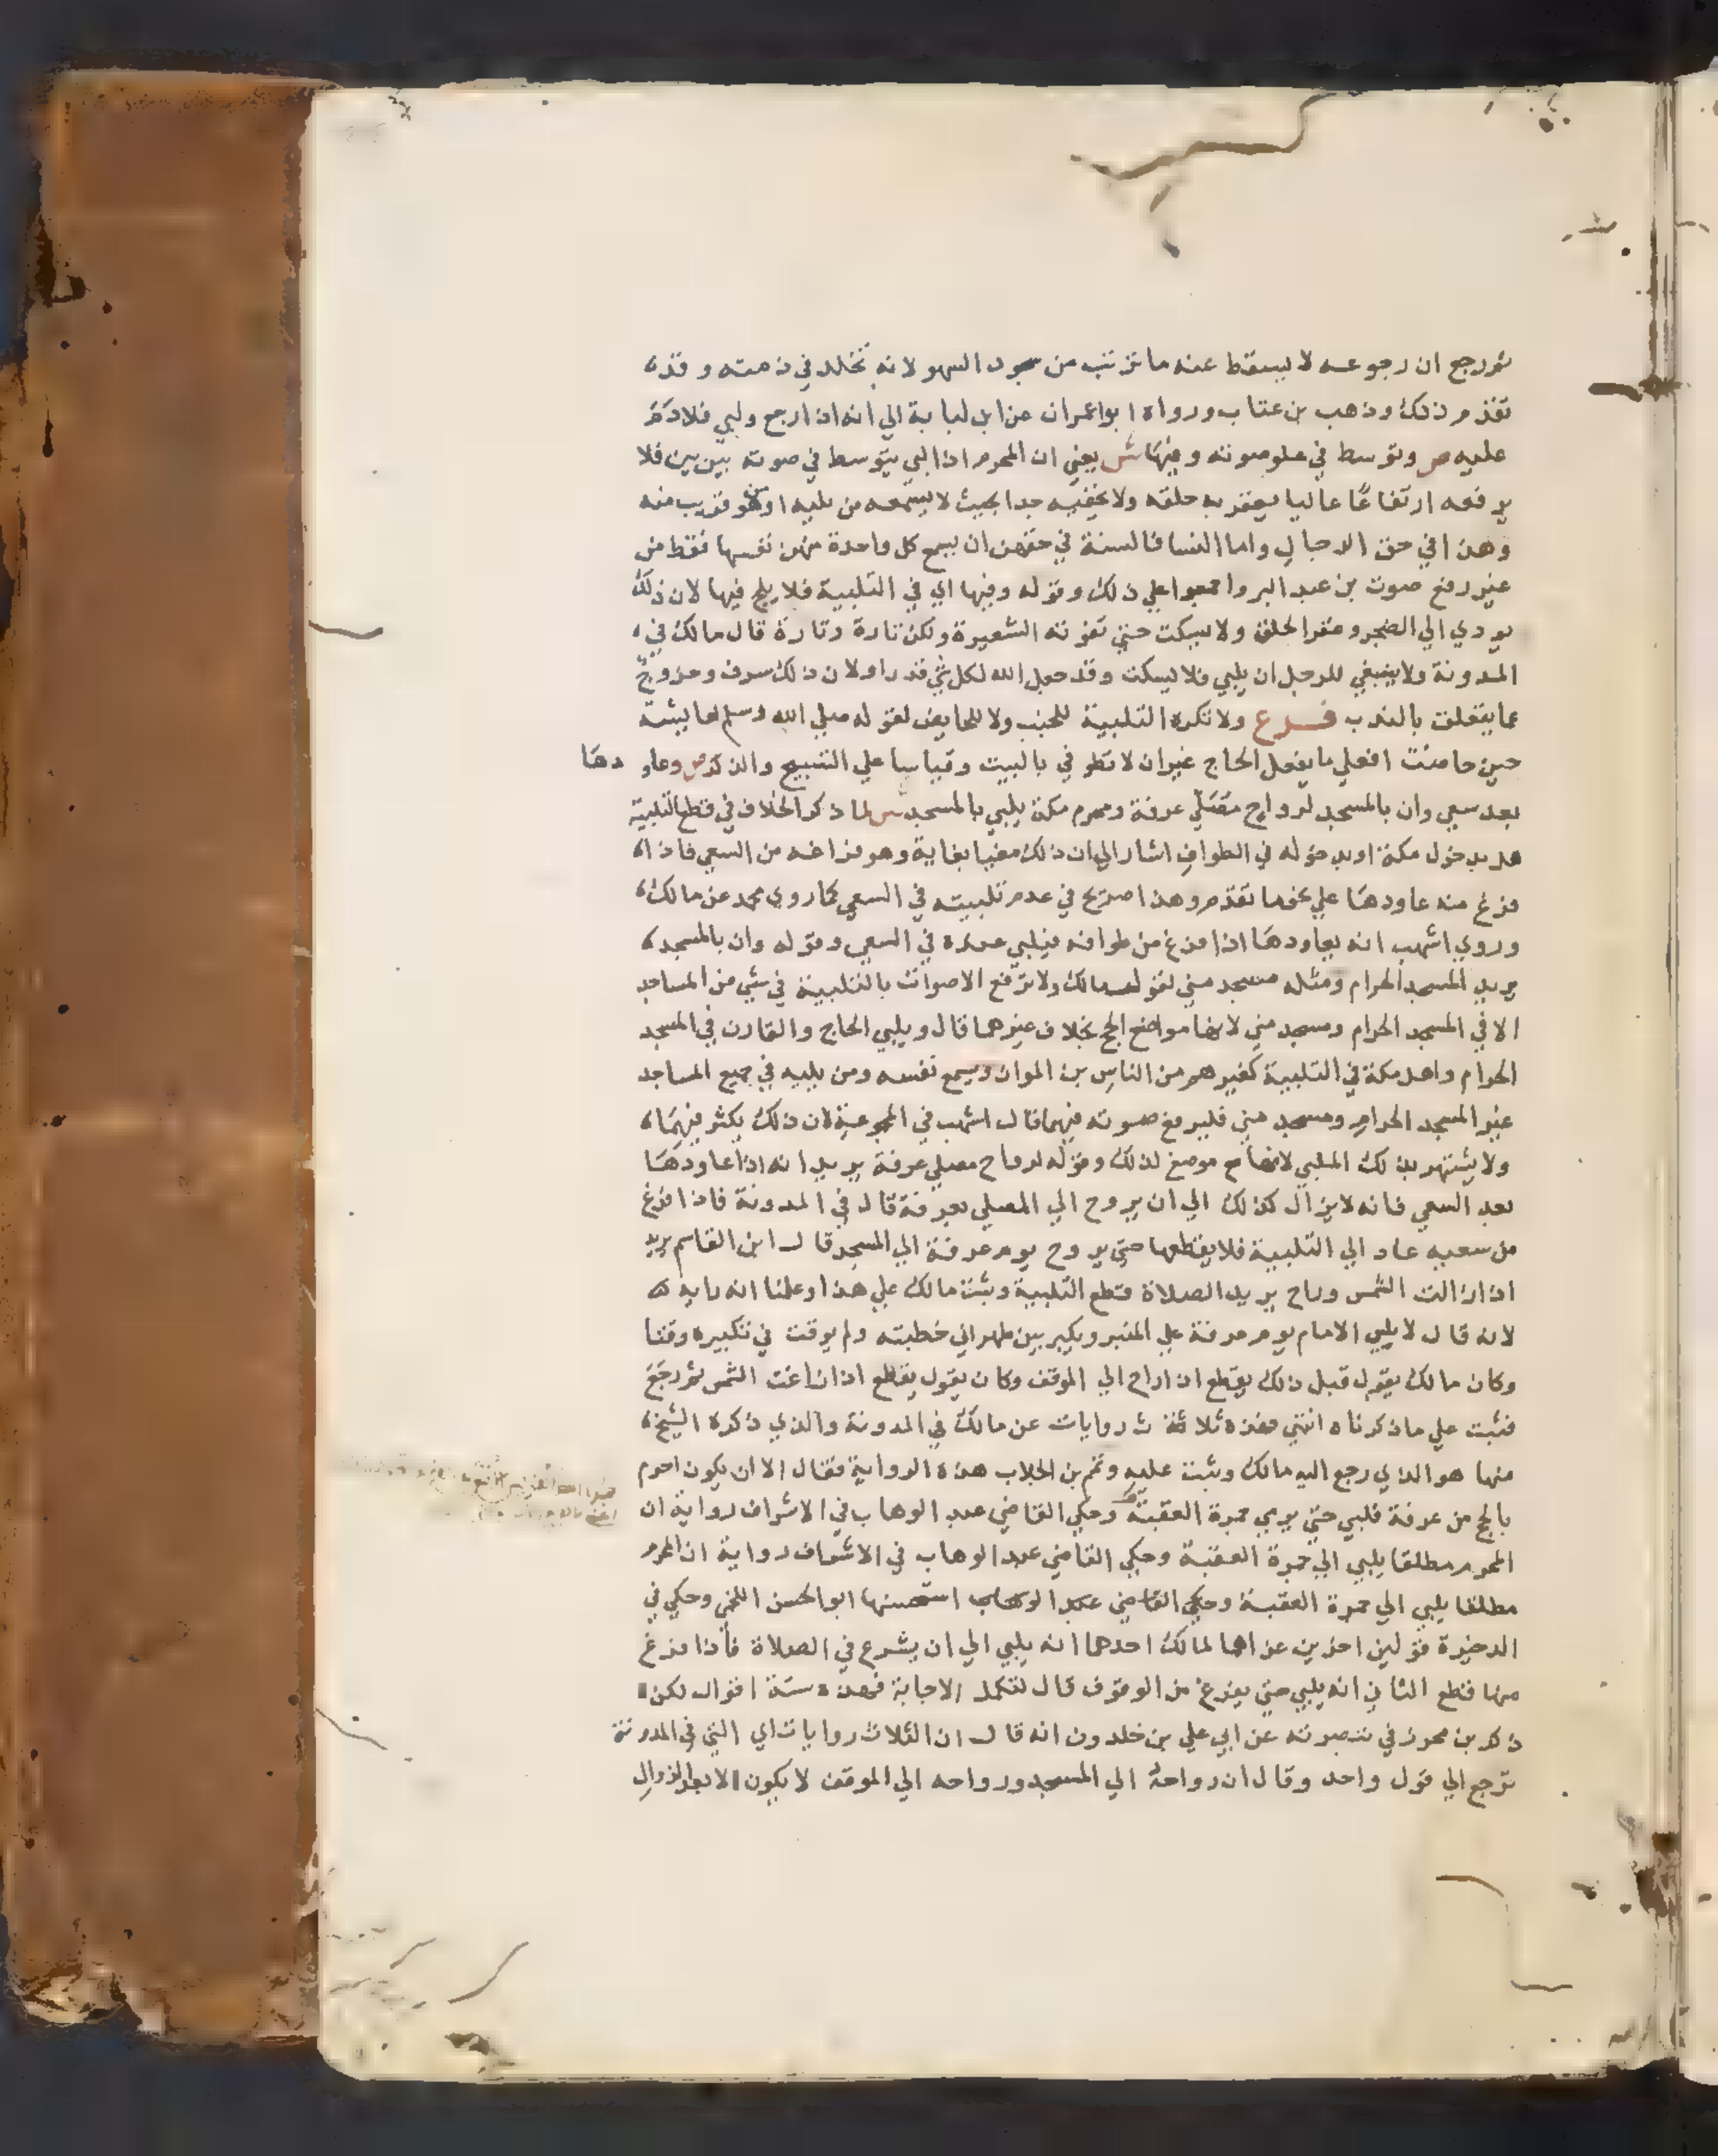 ثم رجع ان رجوعه لا يسقط عنه ما ترتب من سجود السهو لانه تخلد في ذمته وقد
تقدم ذلك وذهب بن عتاب ورواه ابو اعمران عن ابن لبابة الي انه اذا رجع ولبي فلا دم
عليه ص وتوسط في علو صوته وفيها ش يعني ان المحرم اذا لبي يتوسط في صوته بين بين فلا
يرفعه ارتفاعًا عاليا يعقر به حلقه ولا يخفيه جدا بحيث لا يسمعه من يليه او من هو قريب منه
وهذا في حق الرجال واما النسا فالسنة في حقهن ان يسمع كل واحدة منهن نفسها فقط من
غير رفع صوت بن عبد البر واجمعوا علي ذلك وقوله وفيها اي في التلبية فلا يلح فيها لان ذلك
يودي الي الضجر وعقر الحلق ولا يسكت حتي تفوته الشعيرة ولكن تارة وتارة قال مالك في
المدونة ولا ينبغي للرجل ان يلبي فلا يسكت وقد جعل الله لكل شي قدرا ولان ذلك سرف وخروج
عما يتعلق بالندب فرع ولا تكره التلبية للجنب ولا للحايض لقوله صلي الله وسلم لعايشة
حين حاضت افعلي ما يفعل الحاج غير ان لا تطوفي بالبيت وقياسا علي التسبيح والذكر ص وعاودها
بعد سعي وان بالمسجد لرواح مصلي عرفة ومحرم مكة يلبي بالمسجد ش لما ذكر الخلاف في قطع التلبية
هل بدخول مكة او بدخوله في الطواف اشار الي ان ذلك مغيا بغاية وهو فراغه من السعي فاذا
فرغ منه عاودها علي نحو ما تقدم وهذا صريح في عدم تلبيته في السعي كما روي محمد عن مالك
وروي اشهب انه يعاودها اذا فرغ من طوافه فيلبي عنده في السعي وقوله وان بالمسجد
يريد المسجد الحرام ومثله مسجد مني لقول مالك ولا ترفع الاصوات بالتلبية في شي من المساجد
الا في المسجد الحرام ومسجد مني لانها مواضع الحج بخلاف غيرهما قال ويلبي الحاج والقارن في المسجد
الحرام واهل مكة في التلبية كغيرهم من الناس بن المواز ويسمع نفسه ومن يليه في جميع المساجد
غير المسجد الحرام ومسجد مني فليرفع صوته فيهما قال اشهب في المجموعة لان ذلك يكثر فيهما
ولا يشتهر بذلك الملبي لانها موضع لذلك وقوله لرواح مصلي عرفة يريد انه اذا عاودها
بعد السعي فانه لا يزال كذلك الي ان يروح الي المصلي بعرفة قال في المدونة فاذا فرغ
من سعيه عاد الي التلبية فلا يقطعها حتي يروح يوم عرفة الي المسجد قال ابن القاسم يريد
اذا زالت الشمس وراح يريد الصلاة قطع التلبية وثبت مالك علي هذا وعلمنا انه رايه
لانه قال لا يلبي الامام يوم عرفة علي المنبر ويكبر بين ظهراني خطبته ولم يوقت في تكبيره وقتا
وكان مالك يقول قبل ذلك يقطع اذا راح الي الموقف وكان يقول يقطع اذا زاغت الشمس ثم رجع
فثبت علي ما ذكرناه انتهي فهذه ثلاثة ث روايات عن مالك في المدونة والذي ذكره الشيخ
منها هو الذي رجع اليه مالك وثبت عليه وتمم بن الجلاب هذه الرواية فقال الا ان يكون احرم
بالحج من عرفة فلبي حتي يرمي جمرة العقبة وحكي القاضي عبد الوهاب في الاشراف رواية ان
المحرم مطلقا يلبي الي جمرة العقبة وحكي القاضي عبد الوهاب في الاشراف رواية ان المحرم
مطلقا يلبي الي جمرة العقبة وحكي القاضي عبد الوهاب استحسنها ابو الحسن اللخمي وحكي في
الدخيرة قولين اخرين عزاهما لمالك احدهما انه يلبي الي ان يشرع في الصلاة فاذا فرغ
منها قطع الثاني انه يلبي حتي يفرغ من الوقوف قال لتكمل الاجابة فهذه ستة اقوال لكن
ذكر بن محرز في تبصرته عن ابي علي بن خلدون انه قال ان الثلاث روايات اي التي في المدونة
ترجع الي قول واحد وقال ان رواحه الي المسجد ورواحه الي الموقف لا يكون الا بعد الزوال